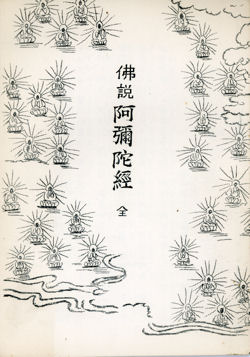 佛説阿彌陀經
全